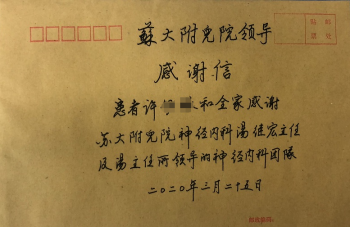 蘇大附兒院领导
感谢信
患者许 和全家感谢
苏大附兒院神经内科湯继宏主任
及湯主任所领导的神经内科团隊
二〇二〇年三月二十五日